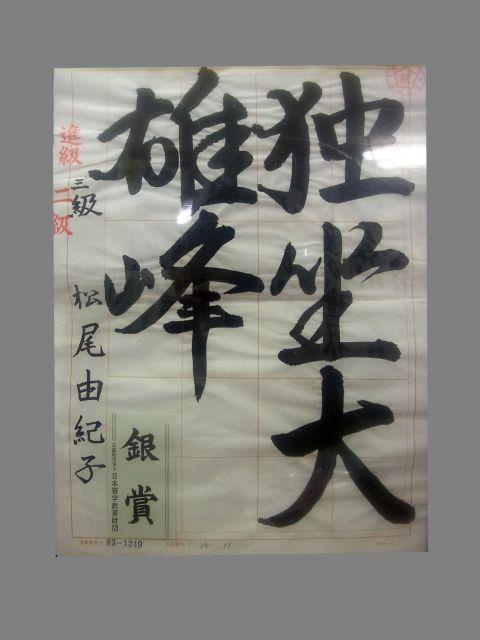 独坐大
雄峰
進級
二級
三級
松尾由紀子
銀賞
公益財団法人 日本習字教育財団
83-1249